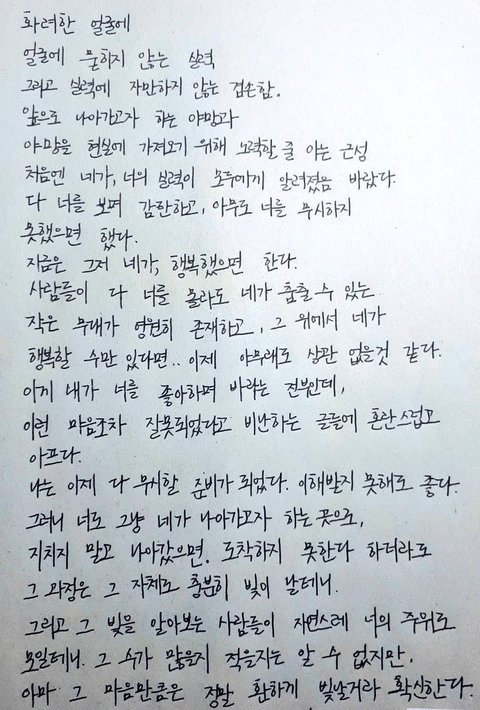 화려한 얼굴에
얼굴에 묻히지 않는 실력
그리고 실력에 자만하지 않는 겸손함.
앞으로 나아가고자 하는 야망과
야망을 현실에 가져오기 위해 노력할 줄 아는 근성
처음엔 네가, 너의 실력이 모두에게 알려졌음 바랐다.
다 너를 보며 감탄하고, 아무도 너를 무시하지
못했으면 했다.
지금은 그저 네가, 행복했으면 한다.
사람들이 다 너를 몰라도 네가 춤출 수 있는
작은 무대가 영원히 존재하고, 그 위에서 네가
행복할 수만 있다면.. 이제 아무래도 상관 없을것 같다.
이게 내가 너를 좋아하며 바라는 전부인데,
이런 마음조차 잘못되었다고 비난하는 글들에 혼란스럽고
아프다.
나는 이제 다 무시할 준비가 되었다. 이해받지 못해도 좋다.
그러니 너도 그냥 네가 나아가고자 하는 곳으로,
지치지 말고 나아갔으면. 도착하지 못한다 하더라도
그 과정은 그 자체로 충분히 빛이 날테니.
그리고 그 빛을 알아보는 사람들이 자연스레 너의 주위로
모일테니. 그 수가 많을지 적을지는 알 수 없지만,
아마 그 마음만큼은 정말 환하게 빛날거라 확신한다.